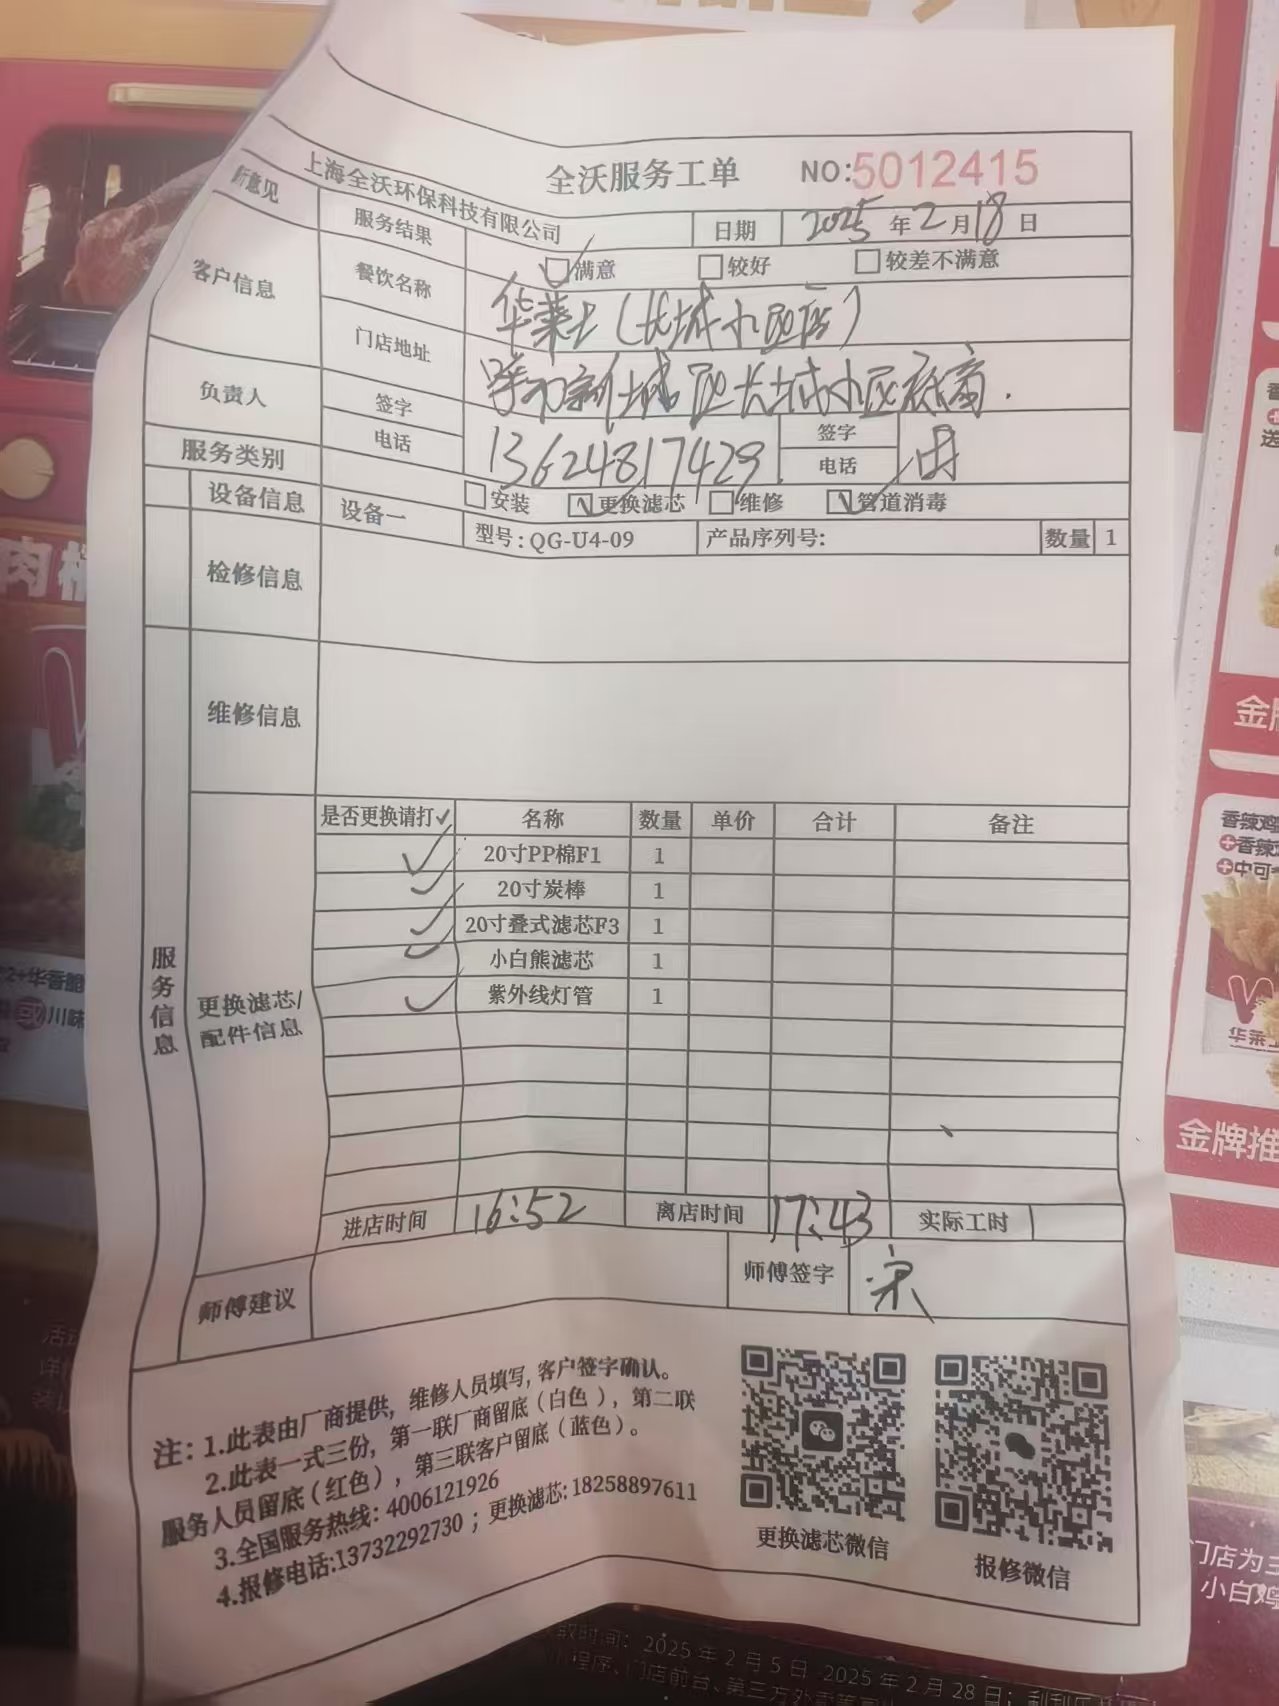 全沃服务工单 NO:5012415
上海全沃环保科技有限公司 日期 2025年2月18日
所意见 服务结果 满意 较好 较差不满意
客户信息 餐饮名称 华莱士(长城小区店)
门店地址 新城区长城小区底商.
负责人 签字 签字
电话 13624817429 电话
服务类别 安装 更换滤芯 维修 管道消毒
设备信息 设备一 型号:QG-U4-09 产品序列号: 数量 1
检修信息
维修信息
服务信息
更换滤芯/
配件信息
是否更换请打✓ 名称 数量 单价 合计 备注
✓ 20寸PP棉F1 1
✓ 20寸炭棒 1
✓ 20寸叠式滤芯F3 1
✓ 小白熊滤芯 1
✓ 紫外线灯管 1
进店时间 16:52 离店时间 17:43 实际工时
师傅建议 师傅签字 宋
注:1.此表由厂商提供,维修人员填写,客户签字确认。
2.此表一式三份,第一联厂商留底(白色),第二联
服务人员留底(红色),第三联客户留底(蓝色)。
3.全国服务热线:4006121926
4.报修电话:13732292730;更换滤芯:18258897611
更换滤芯微信
报修微信
金牌推
香辣鸡
+香辣
+中可
华莱士
2+华香脆
或 川味
门店为三
小白鸡
取时间: 2025年2月5日 2025年2月28日;
程序、门店前台、第三方外卖